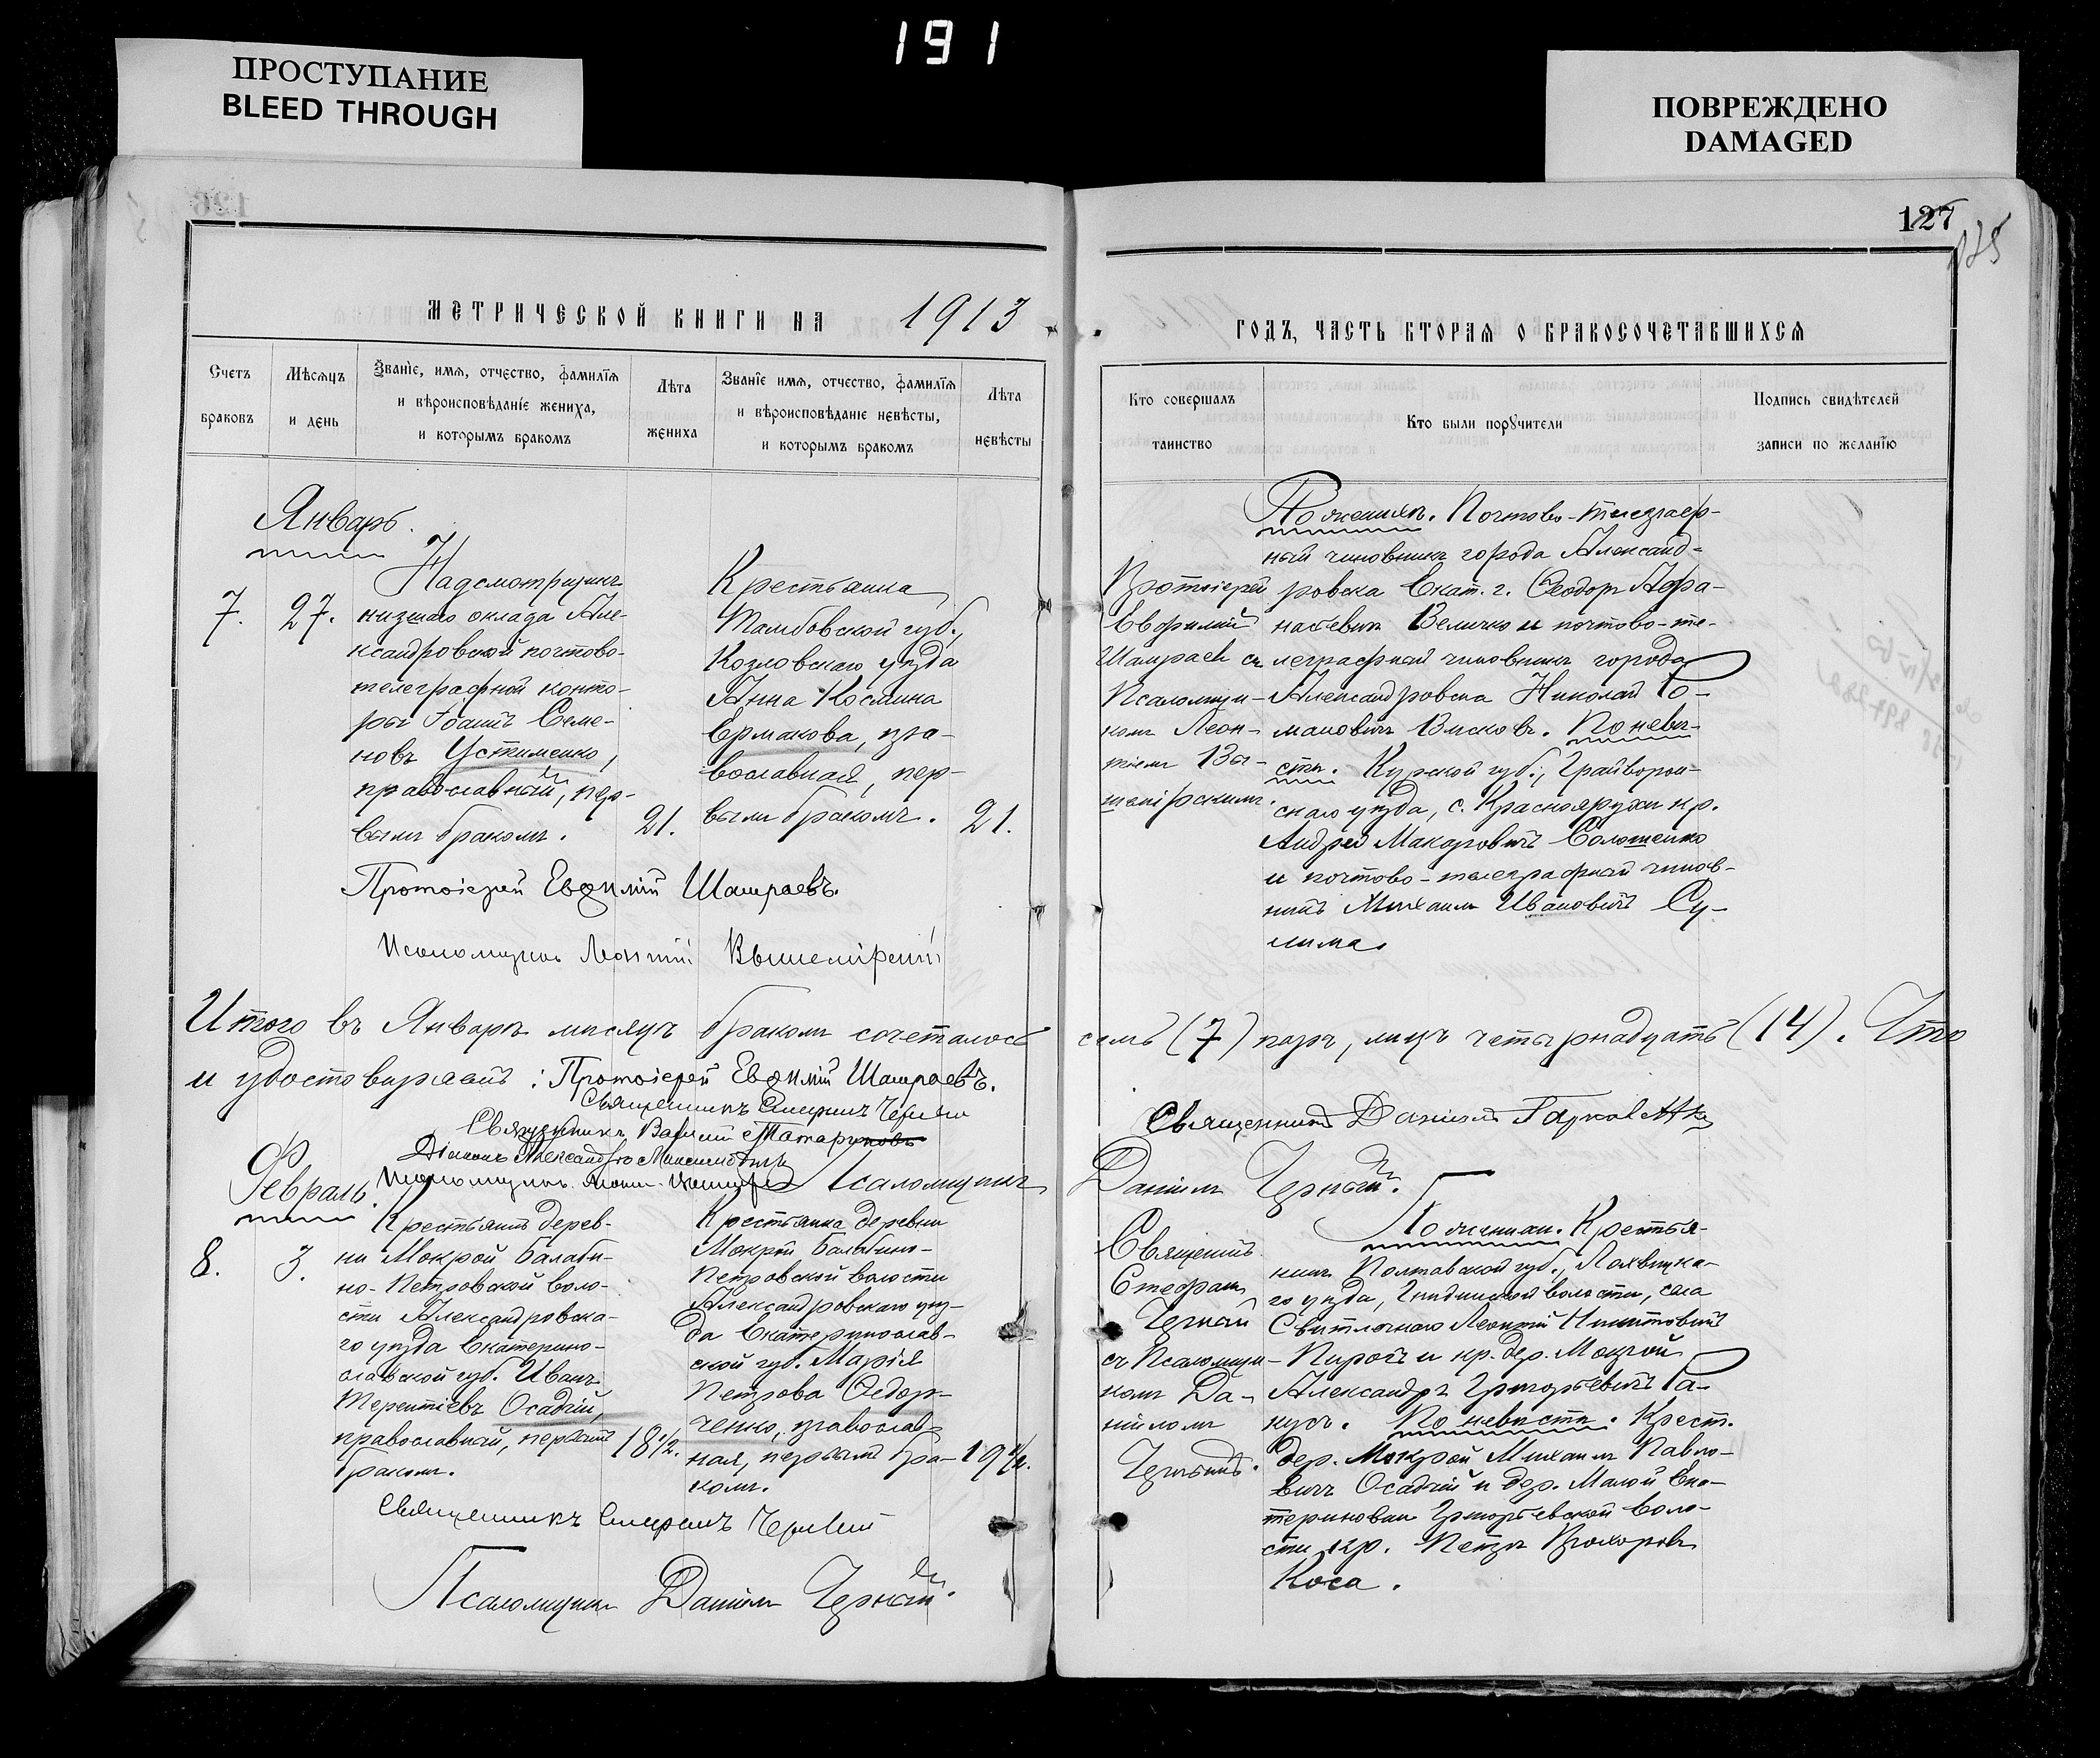 191
ПРОСТУПАНИЕ
BLEED THROUGH
ПОВРЕЖДЕНО
DAMAGED
127
125
МЕТРИЧЕСКОЙ КНИГИ НА 1913
ГОДЪ, ЧАСТЬ ВТОРАЯ О БРАКОСОЧЕТАВШИХСЯ
Счетъ браковъ
Мѣсяцъ и день
Званіе, имя, отчество, фамилія
и вѣроисповѣданіе жениха,
и которымъ бракомъ
Лѣта жениха
Званіе имя, отчество, фамилія
и вѣроисповѣданіе невѣсты,
и которымъ бракомъ
Лѣта невѣсты
Кто совершалъ
таинство
Кто были поручители
Подпись свидѣтелей
записи по желанію
Январь.
7.
27.
Надсмотрщикъ
низшаго оклада Але-
ксандровской почтово-
телеграфной конто-
ры Іоаннъ Семе-
новъ Устименко,
православный, пер-
вымъ бракомъ.
21.
Крестьянка
Тамбовской губ.
Козловскаго уѣзда
Анна Космина
Ермакова, пра-
вославная, пер-
вымъ бракомъ.
21.
Протоіерей
Евфимій
Шамраевъ съ
Псаломщи-
комъ Леон-
тіемъ Вы-
шемірскимъ.
По женихѣ. Почтово-телеграф-
ный чиновникъ города Александ-
ровска Екат. г. Ѳеодоръ Афа-
насьевич Величко и почтово-те-
леграфный чиновникъ города
Александровска Николай Ро-
мановичъ Висковъ. По невѣ-
стѣ. Курской губ., Грайворон-
скаго уѣзда, с. Краснояружи кр.
Андрей Макаровичъ Солошенко
и почтово-телеграфный чинов-
никъ Михаилъ Ивановичъ Су-
лима.
Протоіерей Евѳимій Шамраевъ.
Псаломщикъ Леонтій Вышемірскій
Итого въ Январѣ мѣсяцѣ бракомъ сочеталось семь (7) паръ, лицъ четырнадцать (14). Что
и удостовѣряемъ: Протоіерей Евѳимій Шамраевъ.
Священникъ Стефанъ Черный
Священникъ Василій
Діаконъ Александръ
Священникъ Даніилъ
Псаломщикъ Даніилъ Черный.
Февраль.
8.
3.
Крестьянинъ дерев-
ни Мокрой Балаби-
но-Петровской воло-
сти Александровска-
го уѣзда Екатерино-
славской губ. Иванъ
Терентіевъ Осадчій,
православный, первымъ
бракомъ.
18½.
Крестьянка деревни
Мокрой Балабино-
Петровской волости
Александровскаго уѣз-
да Екатеринослав-
ской губ. Марія
Петрова Ѳедор-
ченко, православ-
ная, первымъ бра-
комъ.
Священникъ
Стефанъ
Черный
съ Псаломщи-
комъ Да-
ніиломъ
Чернымъ.
По женихѣ. Крестья-
нинъ Полтавской губ., Лохвицка-
го уѣзда, волости, села
Леонтій
Пирогъ и кр. дер. Мокрой
Александръ Григорьевичъ Га-
нусъ. По невѣстѣ. Крест.
дер. Мокрой Михаилъ Павло-
вичъ Осадчій и дер. Малой Ека-
териновки Григорьевской воло-
сти кр. Петръ Прохоровъ
Коса.
Священникъ Стефанъ Черный
Псаломщикъ Даніилъ Черный.